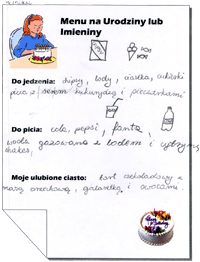 Menu na Urodziny lub
Imieniny
Do jedzenia: chipsy, lody, ciastka, cukierki
pizza z serem kukurydzą i pieczarkami
Do picia: cola, pepsi, fanta,
woda gazowana z lodem i
shakes,
Moje ulubione ciasto: tort czekoladowy z
masą orzechową, galaretką i owocami.